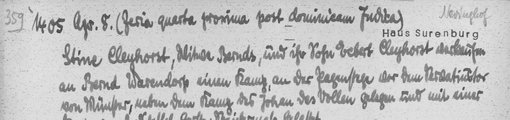 359 1405 Apr. 8. (feria quarta proxima post dominicam Judica) Nevinghof
Haus Surenburg
Stine Cleyhorst, Witwe Bernds, und ihr Sohn Evbert Cleyhorst verkaufen
an Bernd Warendorp einen Kamp, an der Pagenstege vor dem
von Münster, neben dem Kamp des Johan des Vollen gelegen und mit einer